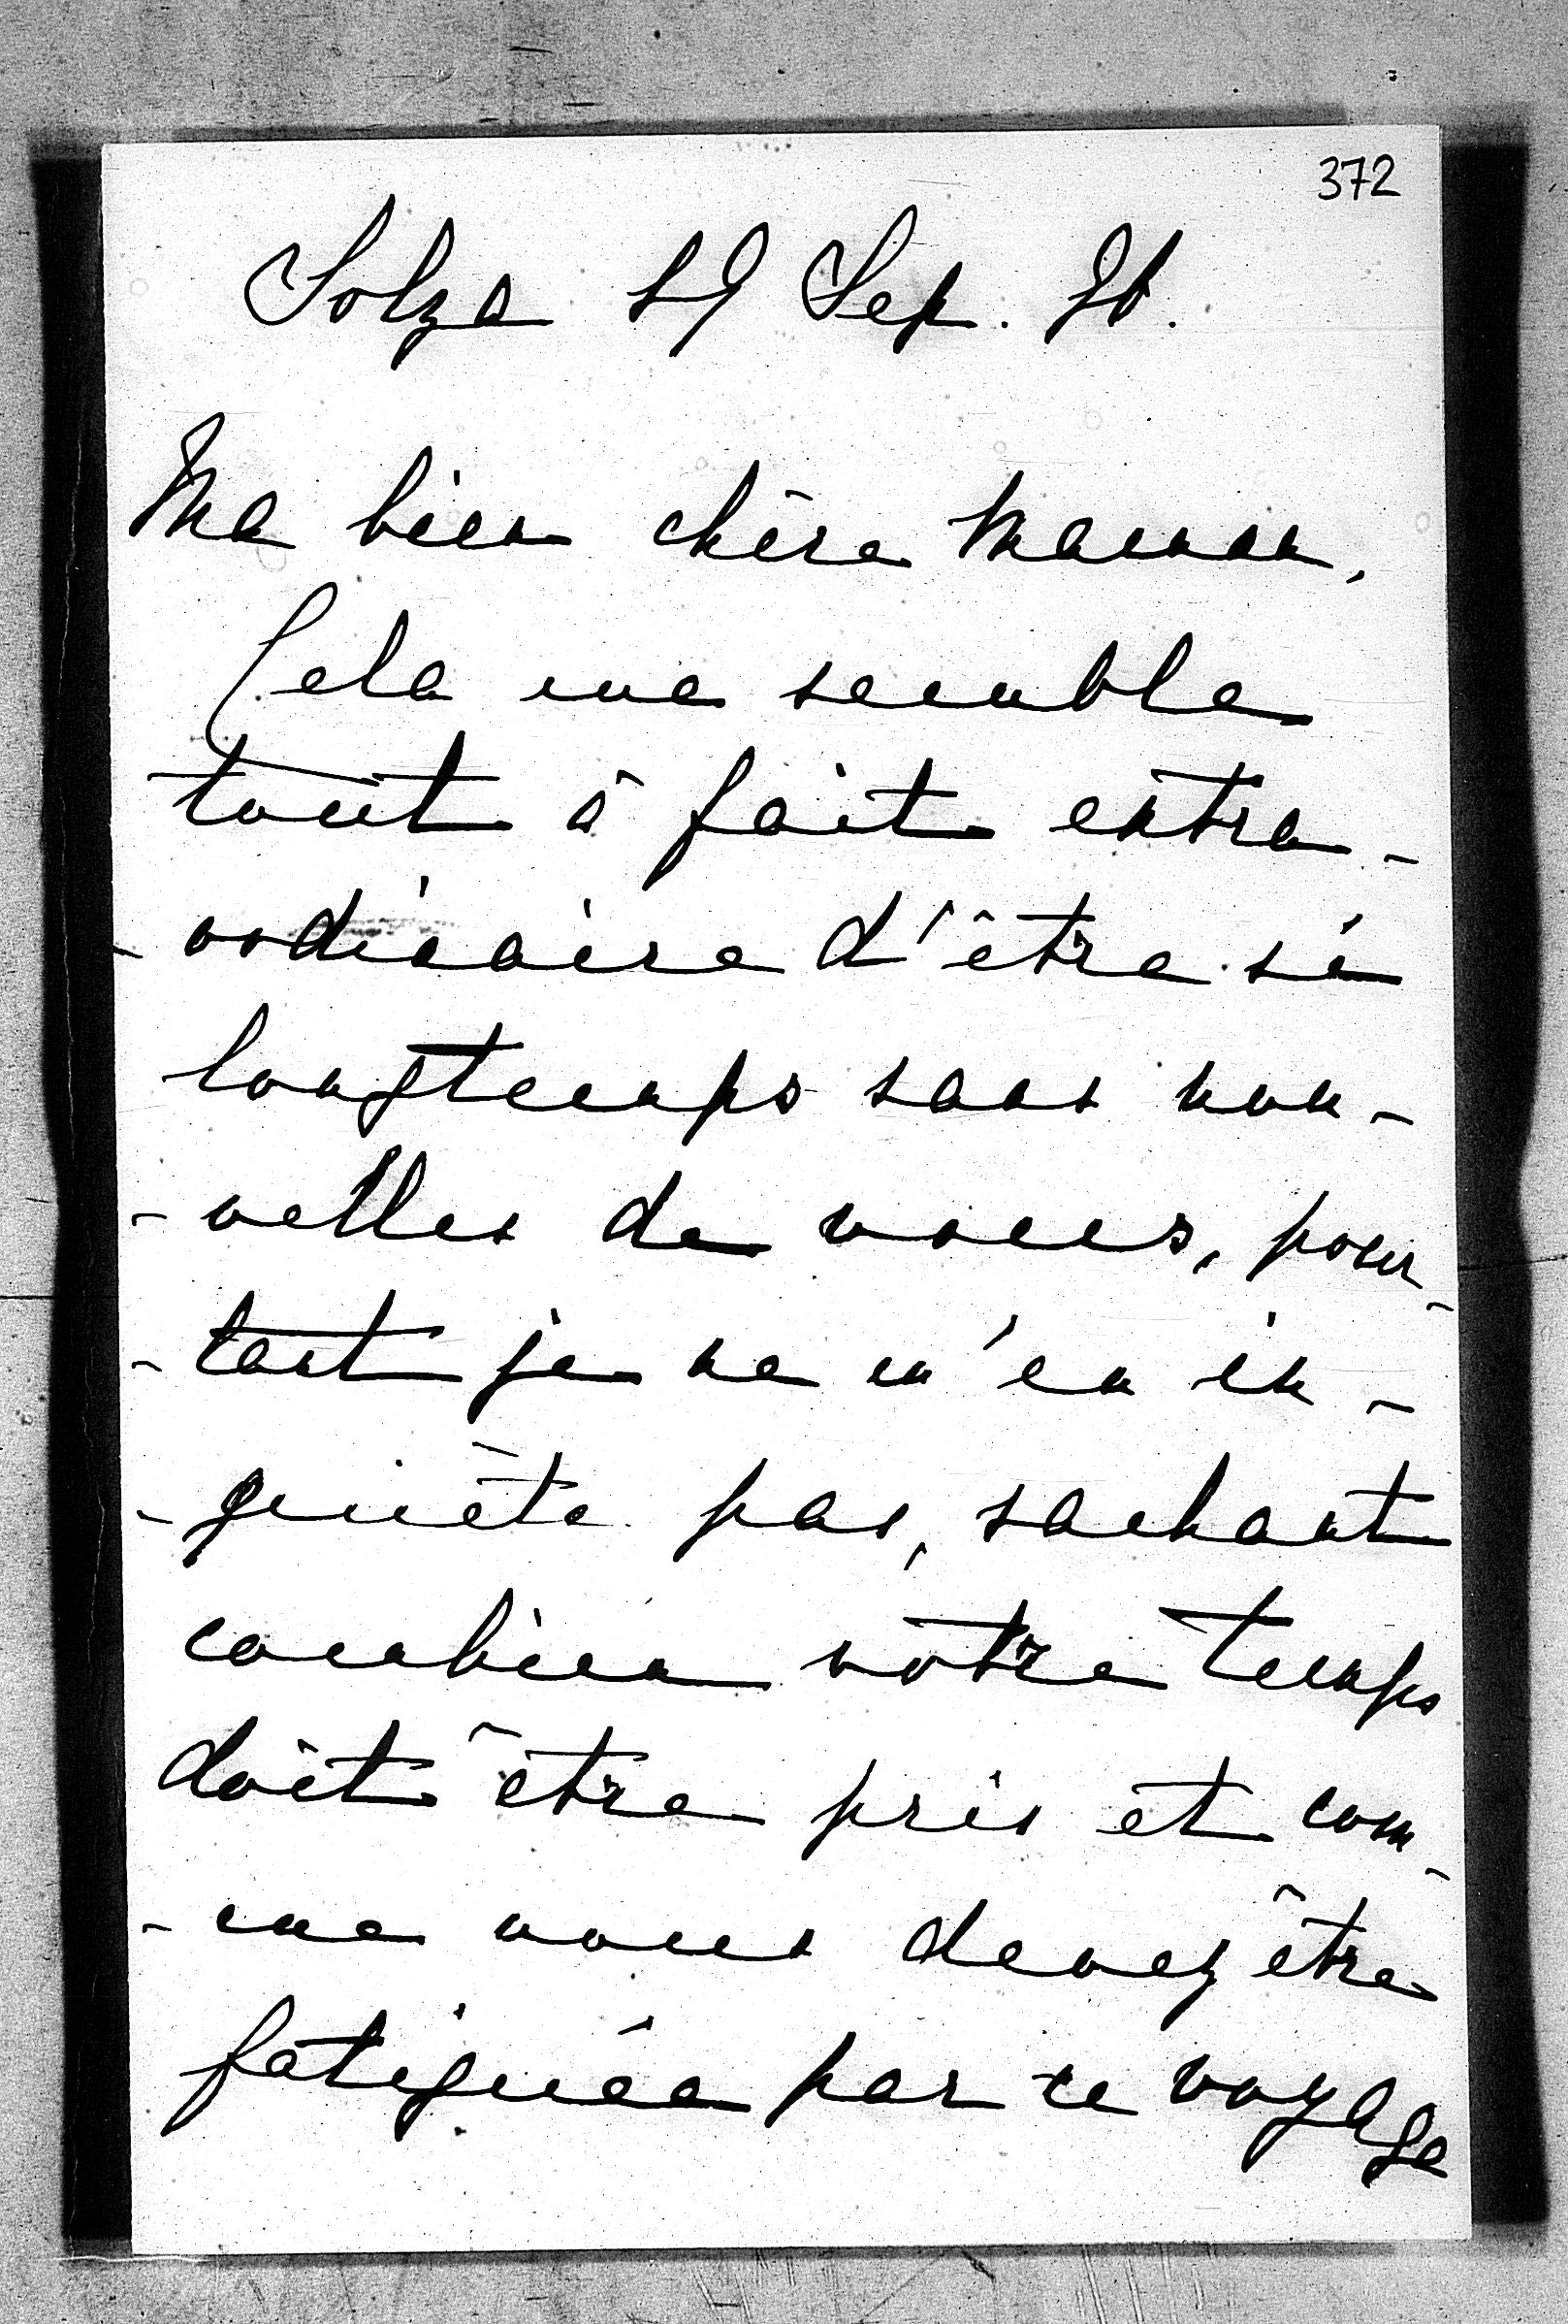 372
Solza 19 Sep. 26.
Ma bien chère Maman,
Cela me semble
tout à fait extra-
-ordinaire d'être si
longtemps sans nou-
-velles de vous, pour-
-tant je ne m'en in-
-quiète pas, sachant
combien votre temps
doit être pris et com-
-me vous devez être
fatiguée par ce voyage